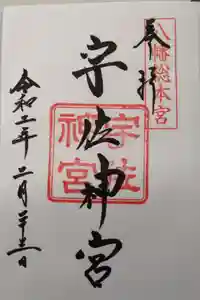 奉拝
八幡総本宮
宇佐神宮
宇佐神宮
令和二年二月二十三日